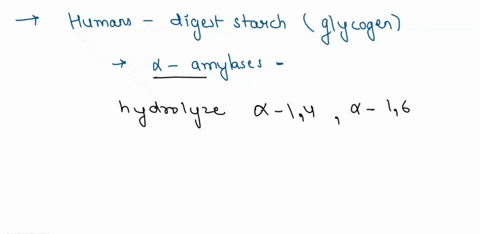 → Humans - digest starch (glycogen)
→ α - amylases -
hydrolyze α-1,4 , α-1,6